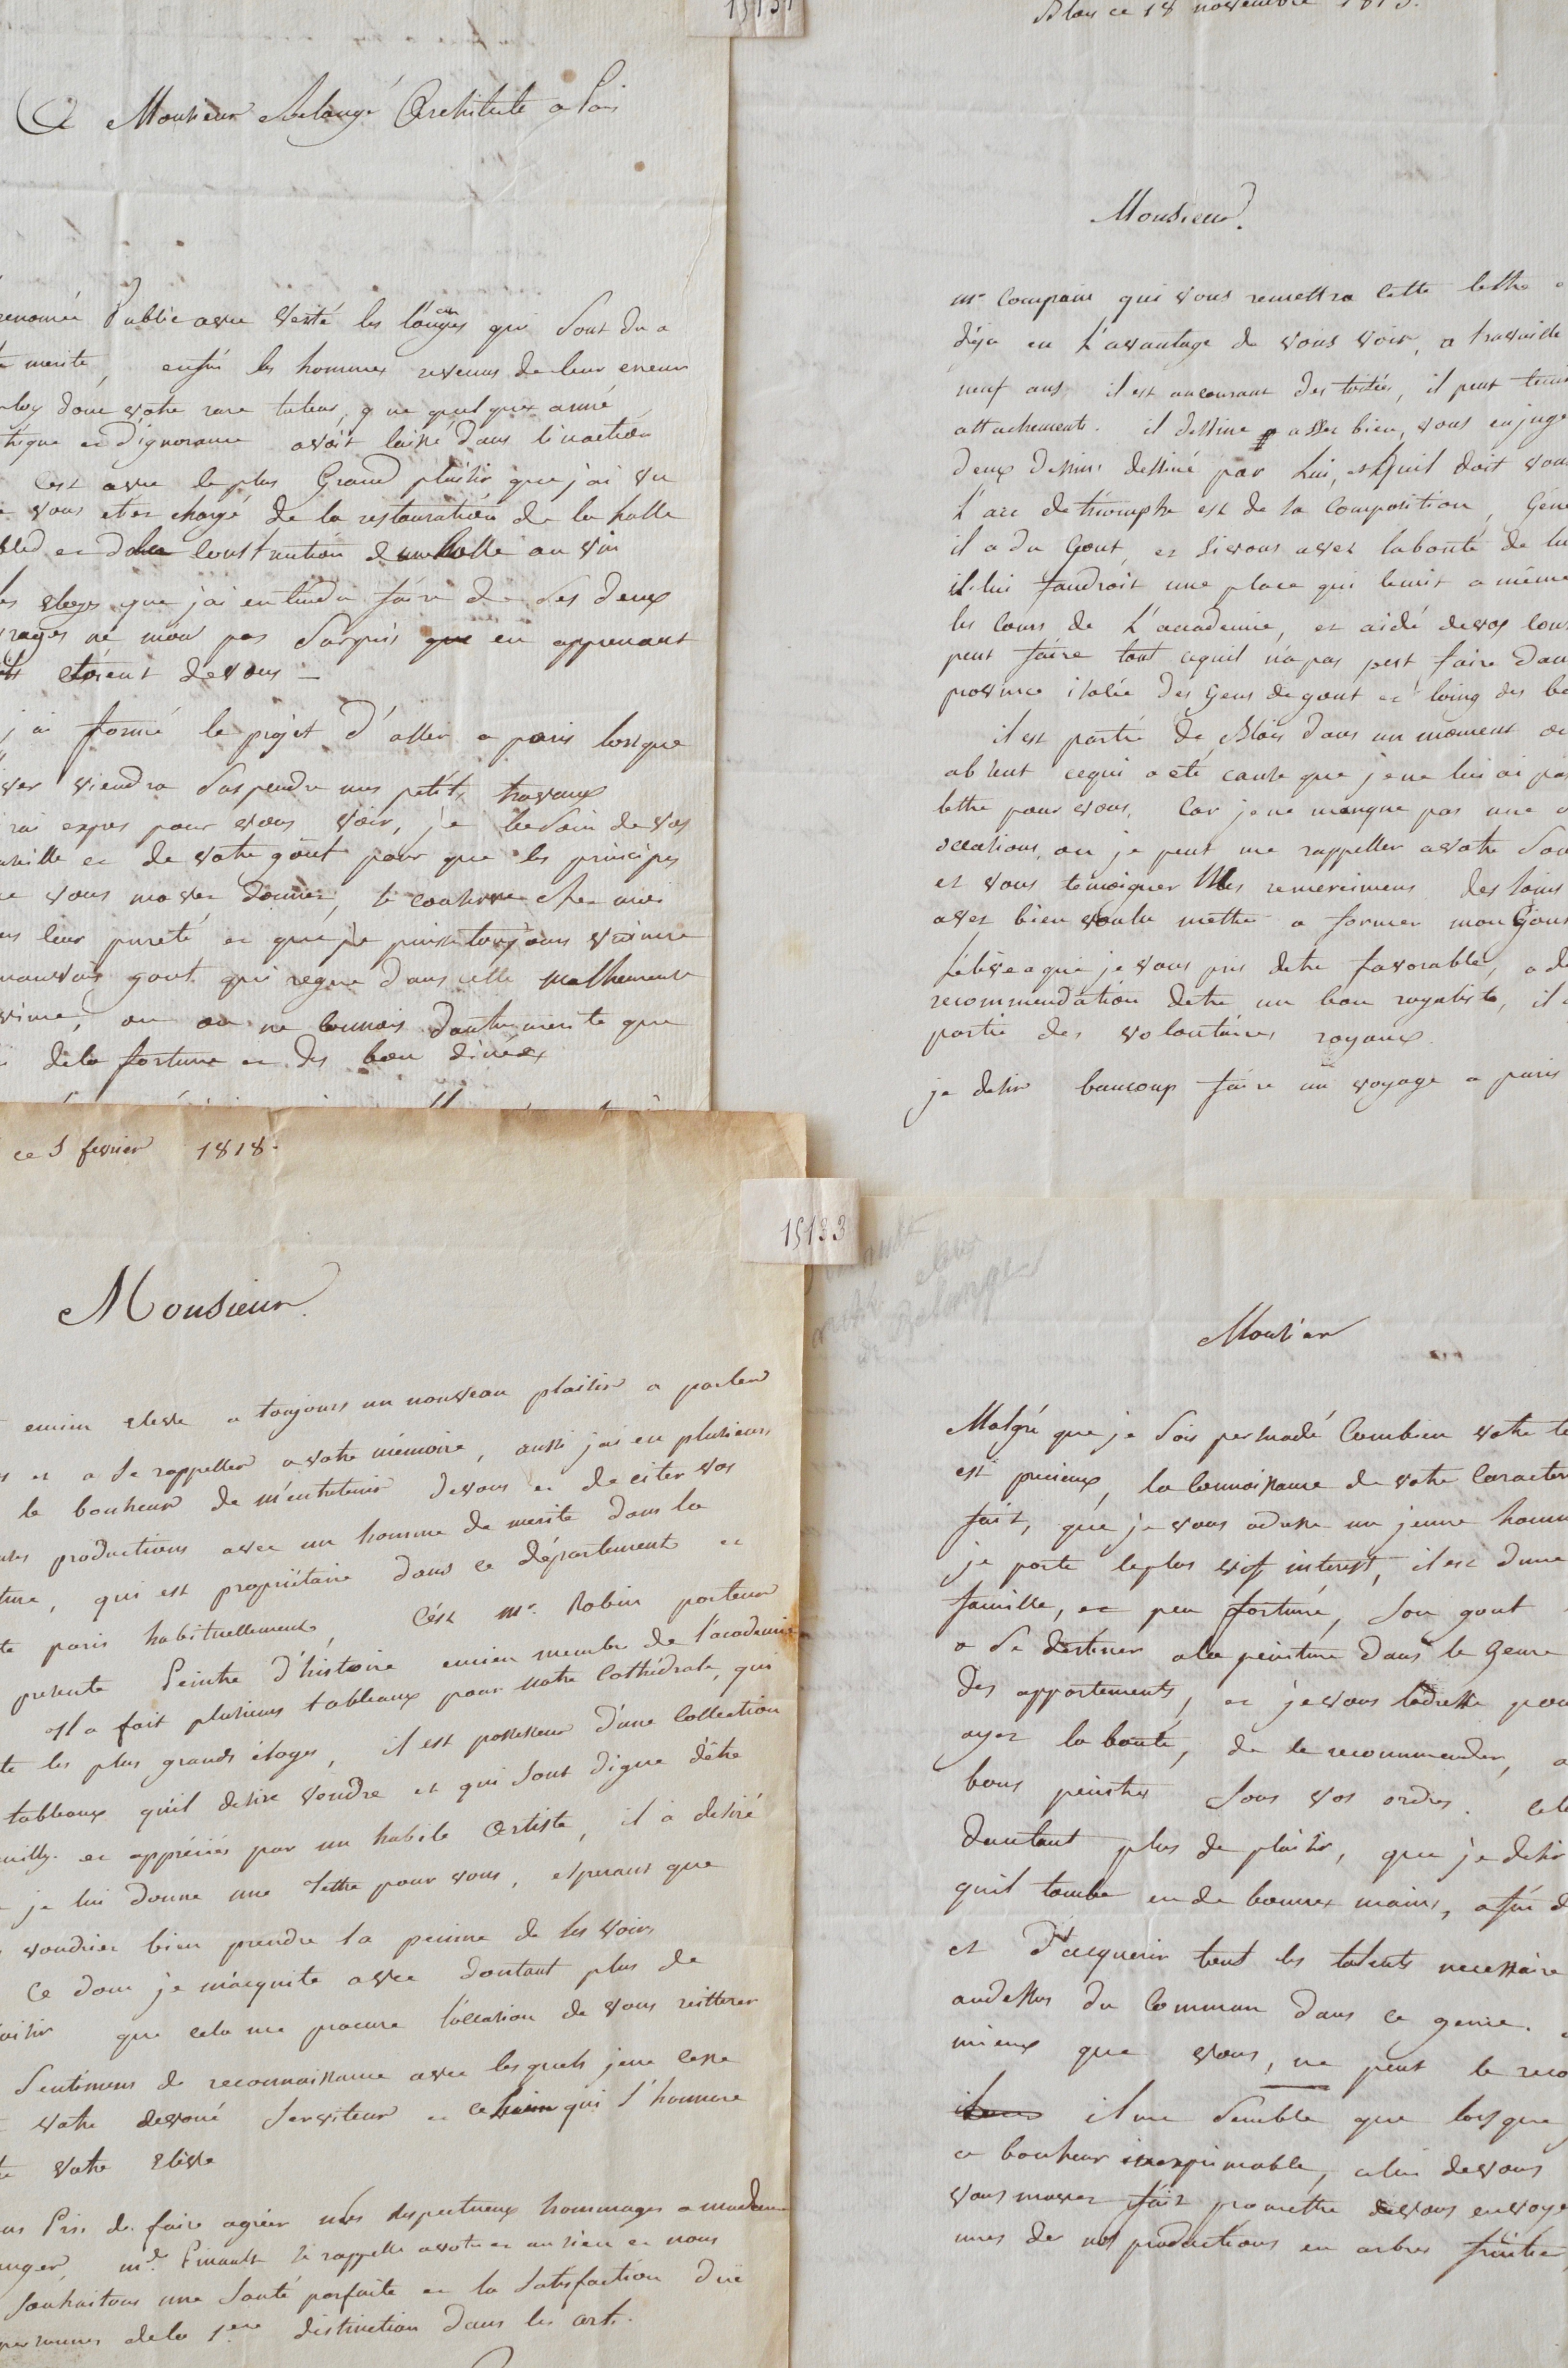 A Monsieur Belangé Architecte a Paris
renomée Public avec verité les louanges qui sont du a
merite, enfin les hommes revenus de leur erreur
donc votre rare talens, que quelques anné
et d'ignorance avoit laissé dans l'inaction
C'est avec le plus Grand plaisir que j'ai vu
vous etes chargé de la restauration de la halle
bled et de la construction d'une halle au vin
eloges que j'ai entendu faire de ses deux
ne mon pas surpris que en apprenant
etoient de vous –
j'ai formé le projet d'aller a paris lorsque
viendra suspendre mes petits travaux
expres pour vous voir, j'e besoin de vos
et de votre gout pour que les principes
vous mavez donner, se conserve chez moi
leur pureté et que je puisse toujours vaincre
mauvais gout qui regne dans cette malheureuse
ou on ne connois d'autre merite que
de la fortune et des bon diners
15131
Blois ce 18 novembre 1815.
Monsieur.
mr Compain qui vous remettra cette lettre a
déja eu l'avantage de vous voir, a travaillé
neuf ans il est aucourant des toisés, il peut
attachement. il dessine assez bien, vous en juge
deux dessins dessiné par lui, et quil doit vous
l'arc de triomphe est de sa composition,
il a du Gout, et si vous avez la bonté de lui
il lui faudroit une place qui le mit a même
les cours de l'accademie, et aidé de vos
peut faire tout cequil n'a pas peut faire dans
province isolée des Gens de gout et loing des
il est partie de Blois dans un moment ou
absent cequi a eté cause que je ne lui ai pas
lettre pour vous, car je ne manque pas une
occations, ou je peut me rappeller a votre
et vous temoigner mes remercimens des soins
avez bien voulu mettre a former mon Gout
l'éléve a qui je vous pris detre favorable, a
recommendation detre un bon royaliste, il
partie des volontaires royaux.
je desir baucoup faire un voyage a paris
ce 5 fevrier 1818.
15133
Monsieur.
encien eleve a toujours un nouveau plaisir a parler
et a se rappeller a votre mémoire, aussi jai eu plusieurs
le bonheur de m'entretenir de vous et de citer vos
productions avec un homme de merite dans la
qui est propriétaire dans ce département et
paris habituellement, C'est mr. Robin porteur
presente Peintre d'histoire encien membre de l'academie
Il a fait plusieurs tableaux pour notre Cathédrale, qui
les plus grands éloges, il est possesseur d'une Collection
tableaux qu'il desire vendre et qui sont digne d'être
et appréciés par un habile Artiste, il a desiré
je lui donne une lettre pour vous, esperant que
voudriez bien prendre la peinne de les voir
Ce dont je m'acquite avec dontant plus de
que cela me procure l'occation de vous reitterer
sentimens de reconnoissance avec lesquels je ne cesse
votre devoué serviteur et celui qui s'honnore
votre Eléve
Pris de faire agréer mes respectueux hommages a madame
mde Pinault se rappelle a votre et au sien et nous
souhaitons une santé parfaite et la satisfaction due
de la 1ere distinction dans les art.
Belanger
Monsieur
Malgré que je sois persuadé combien votre
est precieux, la connoissance de votre Caractere
fait, que je vous adresse un jeune homme
je porte le plus vif interest, il est d'une
famille, et peu fortuné, son gout
a se destiner a la peinture dans le Genre
des appartements, et je vous ladresse pour
ayez la bonté, de le recommender, a
bons peintres sous vos ordres.
dautant plus de plaisir, que je desir
quil tombe en de bonnes mains, afin d
et d'acquerir tout les talents necessaire
audessus du commun dans ce genre.
mieux que vous, ne peut le
il me semble que lorsque
ce bonheur inexprimable, celui de vous
vous mavez fait promettre de vous envoye
unes de nos productions en arbres fruitier